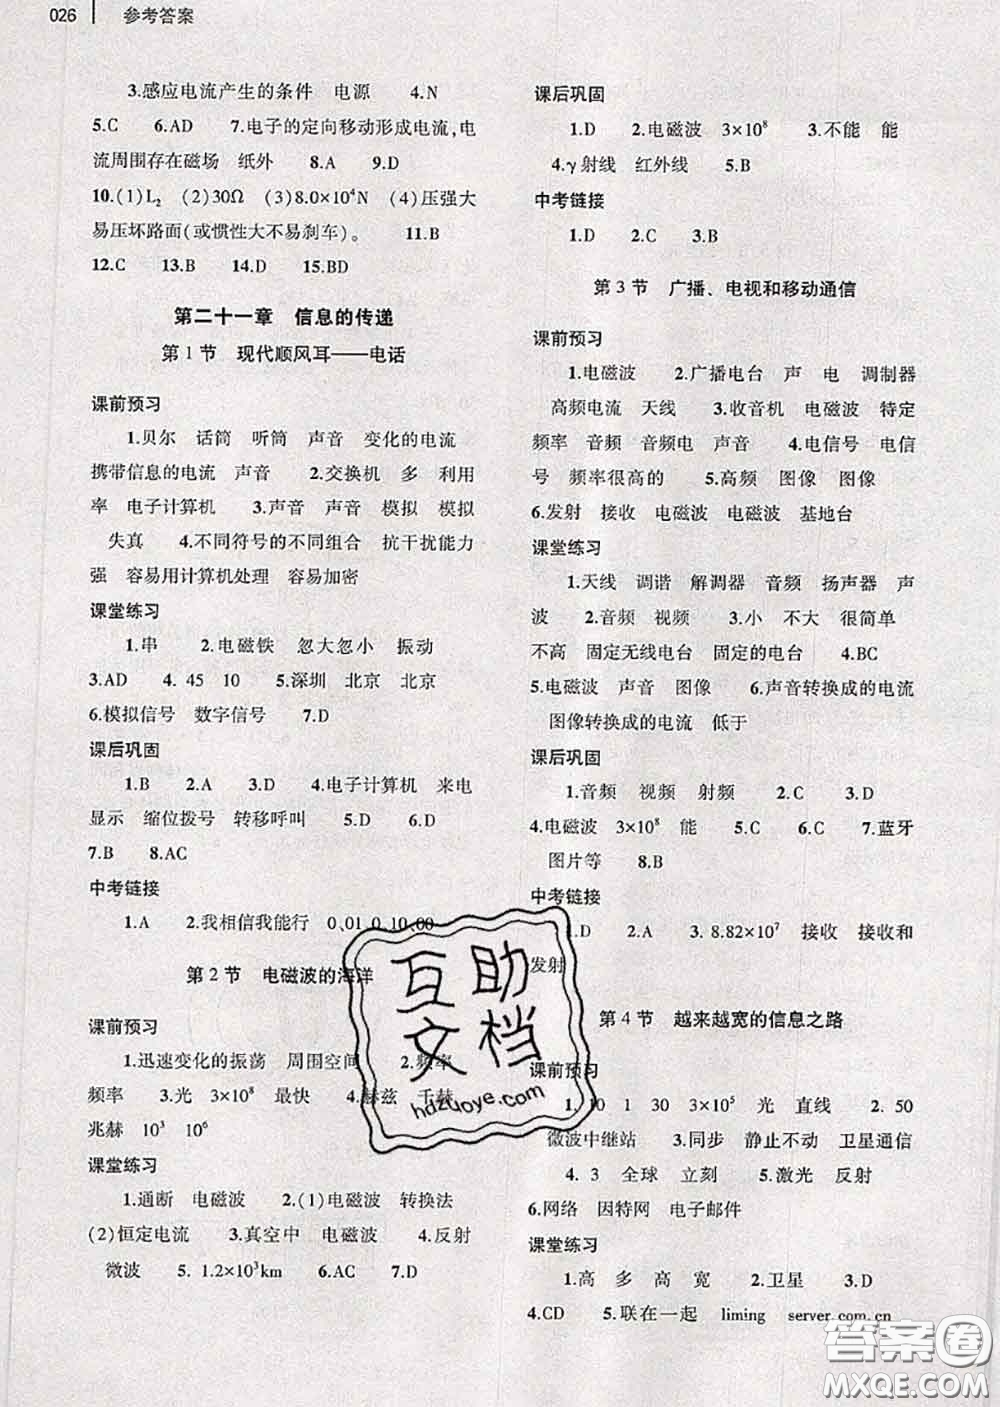 026 参考答案
3.感应电流产生的条件 电源 4.N
5.C 6.AD 7.电子的定向移动形成电流,电
流周围存在磁场 纸外 8.A 9.D
10.(1)L₂ (2)30Ω (3)8.0×10⁴N (4)压强大
易压坏路面(或惯性大不易刹车)。 11.B
12.C 13.B 14.D 15.BD
第二十一章 信息的传递
第1节 现代顺风耳——电话
课前预习
1.贝尔 话筒 听筒 声音 变化的电流
携带信息的电流 声音 2.交换机 多 利用
率 电子计算机 3.声音 声音 模拟 模拟
失真 4.不同符号的不同组合 抗干扰能力
强 容易用计算机处理 容易加密
课堂练习
1.串 2.电磁铁 忽大忽小 振动
3.AD 4. 45 10 5.深圳 北京 北京
6.模拟信号 数字信号 7.D
课后巩固
1.B 2.A 3.D 4.电子计算机 来电
显示 缩位拨号 转移呼叫 5.D 6.D
7.B 8.AC
中考链接
1.A 2.我相信我能行 0、01、0、10、00
第2节 电磁波的海洋
课前预习
1.迅速变化的振荡 周围空间 2.频率
频率 3.光 3×10⁸ 最快 4.赫兹 千赫
兆赫 10³ 10⁶
课堂练习
1.通断 电磁波 2.(1)电磁波 转换法
(2)恒定电流 3.真空中 电磁波 4.反射
微波 5. 1.2×10³km 6.AC 7.D
课后巩固
1.D 2.电磁波 3×10⁸ 3.不能 能
4.γ射线 红外线 5.B
中考链接
1.D 2.C 3.B
第3节 广播、电视和移动通信
课前预习
1.电磁波 2.广播电台 声 电 调制器
高频电流 天线 3.收音机 电磁波 特定
频率 音频 音频电 声音 4.电信号 电信
号 频率很高的 5.高频 图像 图像
6.发射 接收 电磁波 电磁波 基地台
课堂练习
1.天线 调谐 解调器 音频 扬声器 声
波 2.音频 视频 3.小 不大 很简单
不高 固定无线电台 固定的电台 4.BC
5.电磁波 声音 图像 6.声音转换成的电流
图像转换成的电流 低于
课后巩固
1.音频 视频 射频 2.C 3.D
4.电磁波 3×10⁸ 能 5.C 6.C 7.蓝牙
图片等 8.B
中考链接
1.D 2.A 3. 8.82×10⁷ 接收 接收和
发射
第4节 越来越宽的信息之路
课前预习
1. 10 1 30 3×10⁵ 光 直线 2. 50
微波中继站 3.同步 静止不动 卫星通信
4. 3 全球 立刻 5.激光 反射
6.网络 因特网 电子邮件
课堂练习
1.高 多 高 宽 2.卫星 3.D
4.CD 5.联在一起 liming server.com.cn
互助
文档
hdzuoye.com
答案圈
MXQE.COM